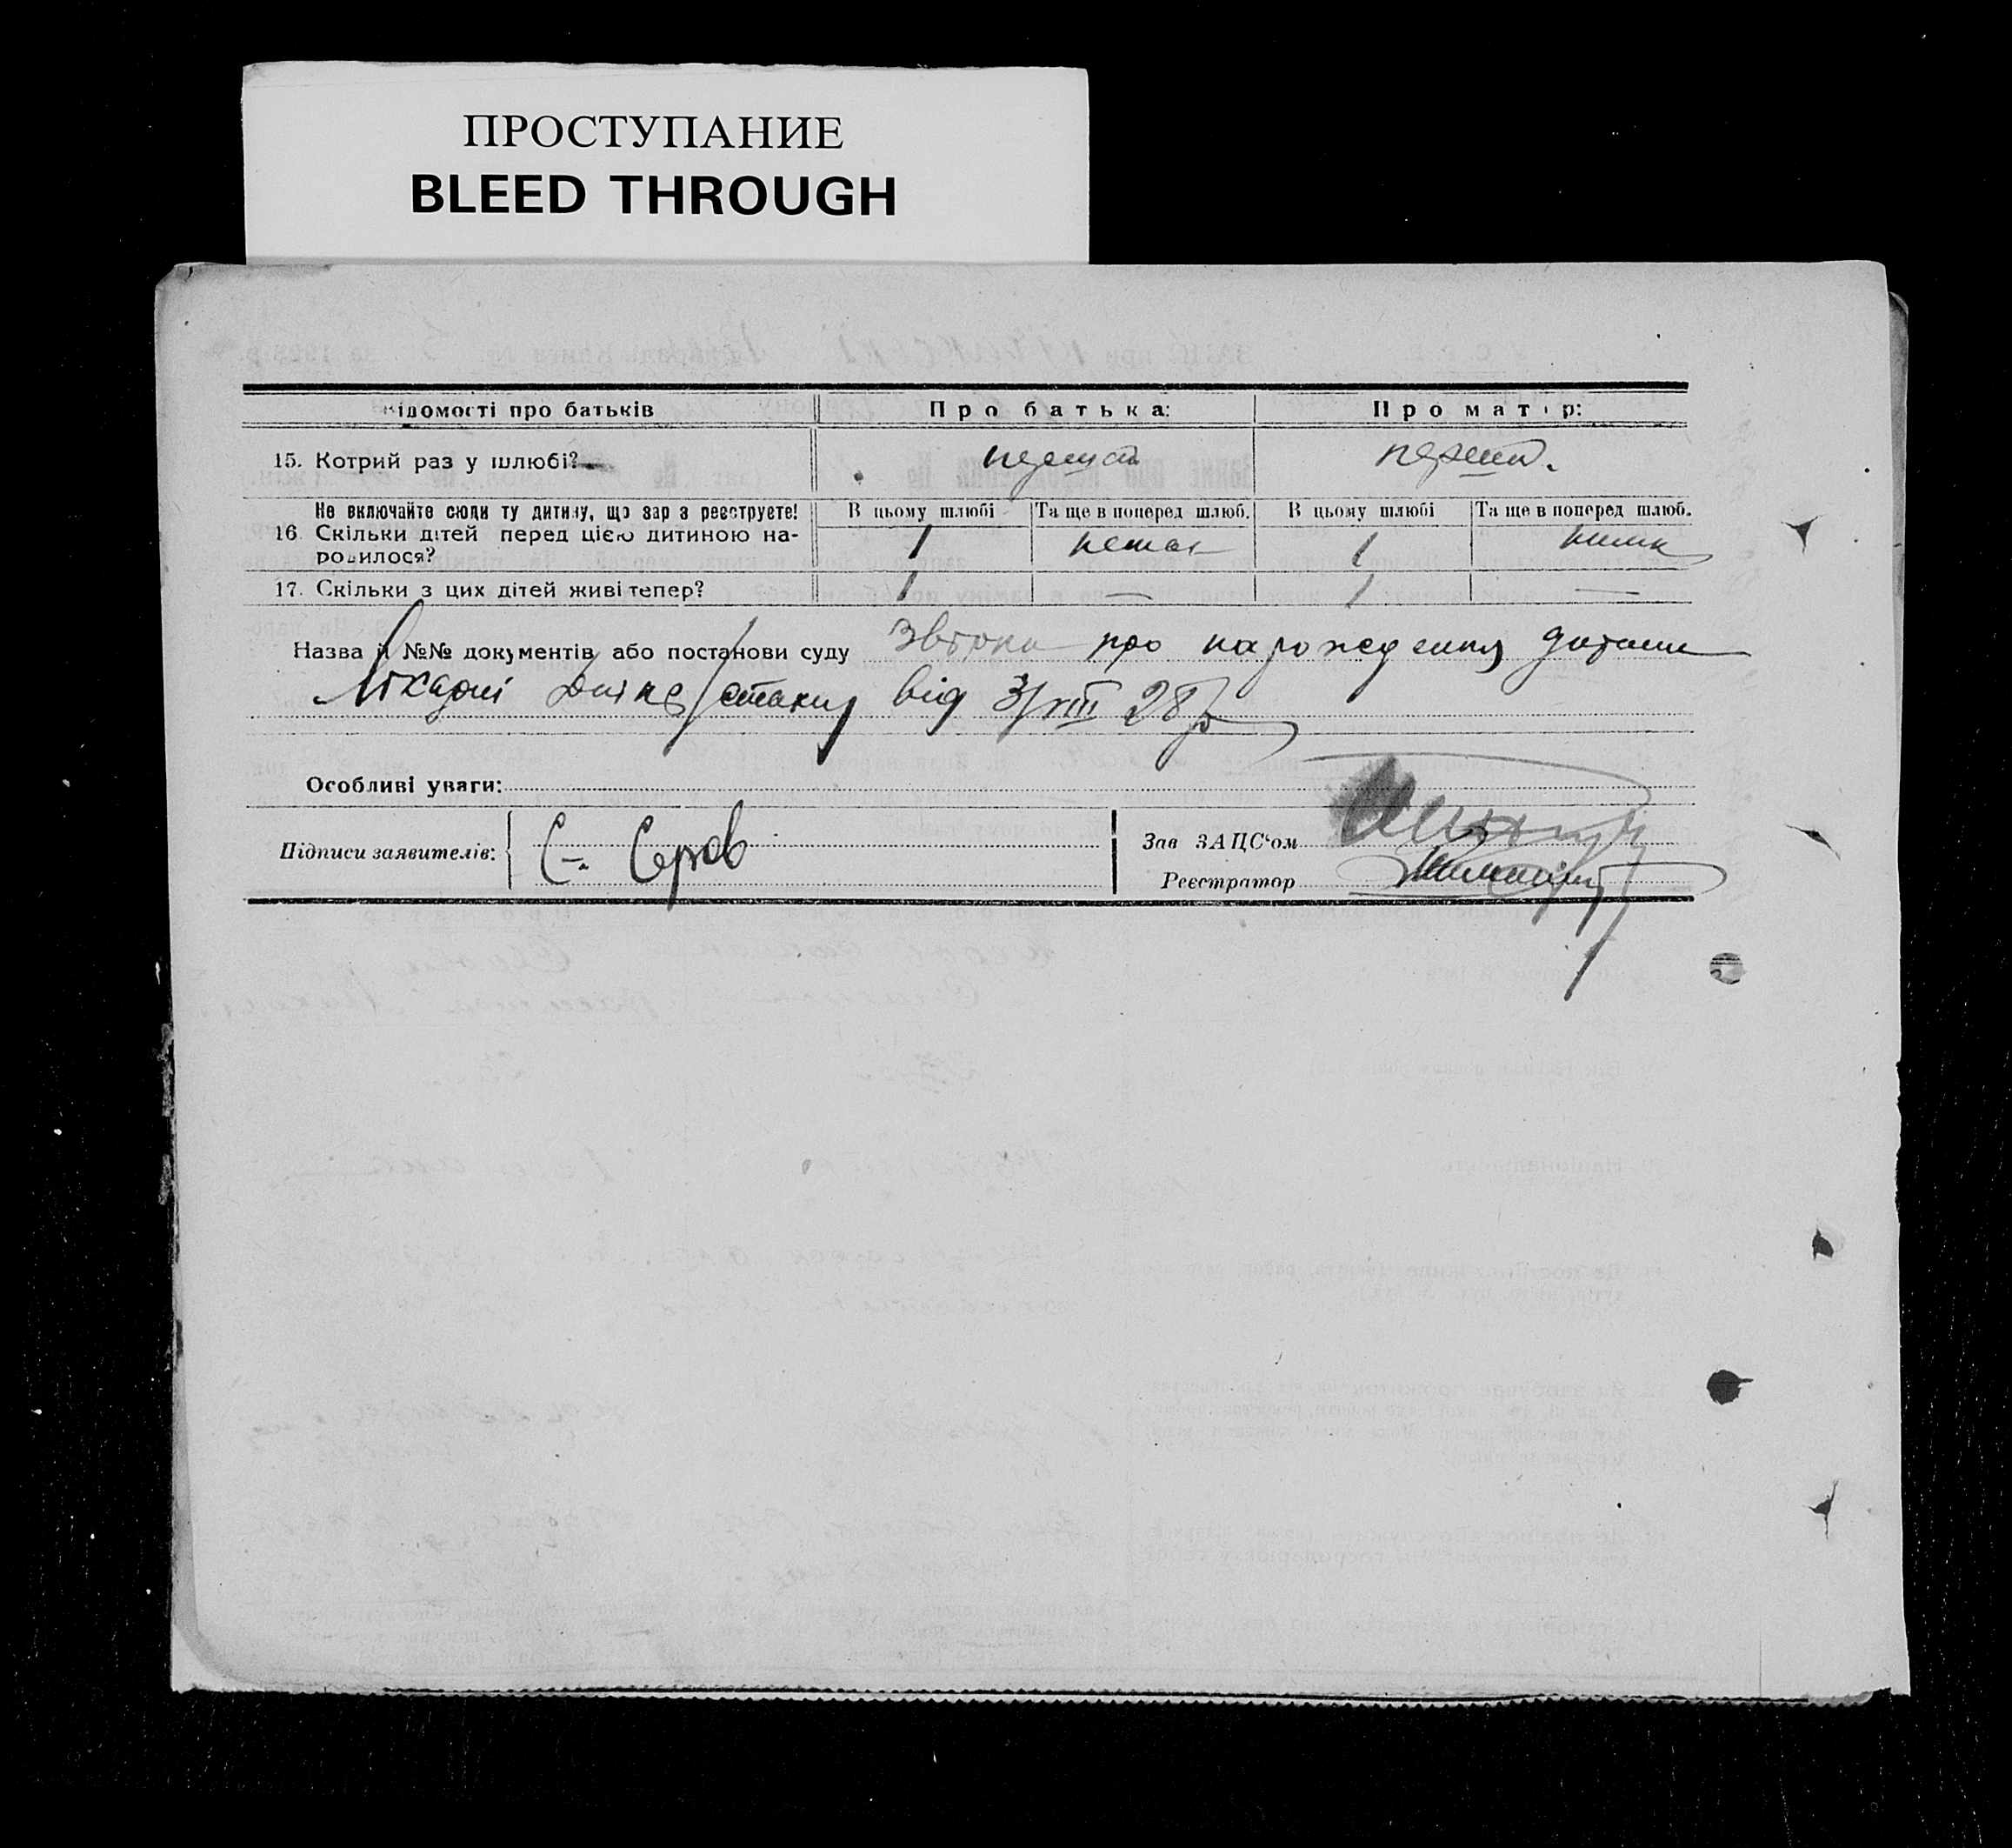 ПРОСТУПАНИЕ
BLEED THROUGH
Відомості про батьків Про батька: Про матір:
15. Котрий раз у шлюбі? перший перший.
Не включайте сюди ту дитину, що зар з реєструєте! В цьому шлюбі Та ще в поперед шлюб. В цьому шлюбі Та ще в поперед шлюб.
16. Скільки дітей перед цією дитиною на-
родилося? 1 немає 1
17. Скільки з цих дітей живі тепер? 1 — 1 —
Назва й №№ документів або постанови суду про народження дитини
від 3/VIII 28 р
Особливі уваги:
Підписи заявителів: С. Серов Зав ЗАЦС'ом
Реєстратор